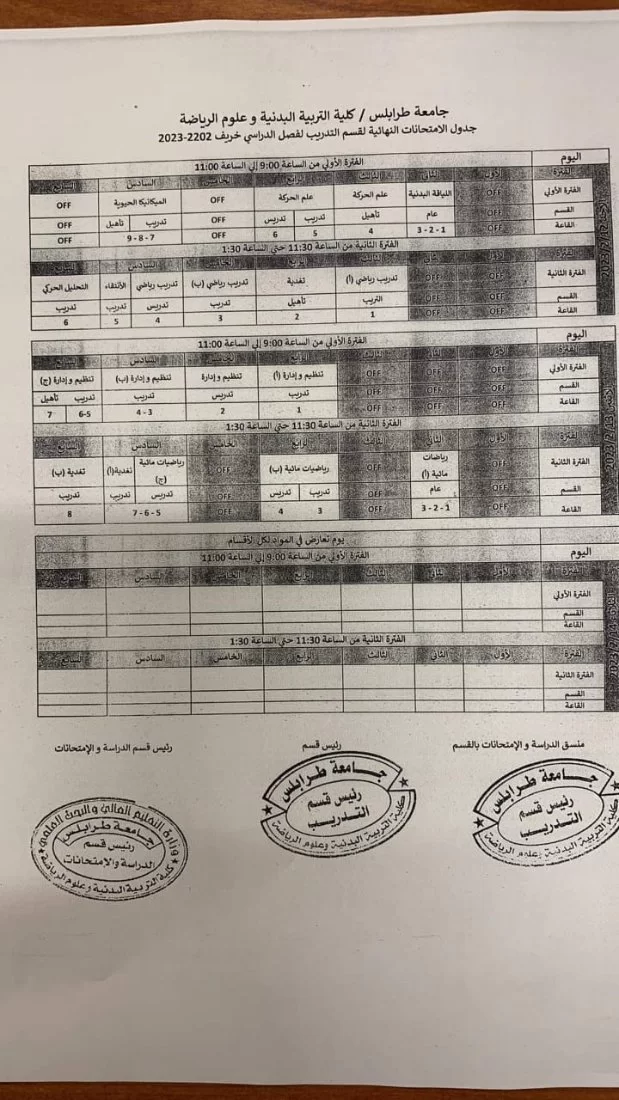 جامعة طرابلس / كلية التربية البدنية و علوم الرياضة
جدول الامتحانات النهائية لقسم التدريب لفصل الدراسي خريف 2202-2023
اليوم الفترة الأولي من الساعة 9:00 إلي الساعة 11:00
الفترة الأول الثاني الثالث الرابع الخامس السادس السابع
الفترة الأولي OFF اللياقة البدنية علم الحركة علم الحركة OFF الميكانيكا الحيوية OFF
القسم OFF عام تأهيل تدريب تدريس OFF تدريب تأهيل OFF
القاعة OFF 1 - 2 - 3 4 5 6 OFF 7 - 8 - 9 OFF
الفترة الثانية من الساعة 11:30 حتي الساعة 1:30
الفترة الثانية OFF OFF تدريب رياضي (أ) تغذية تدريب رياضي (ب) تدريب رياضي الأنتقاء التحليل الحركي
القسم OFF OFF التريب تأهيل تدريب تدريس تدريب تدريب
القاعة OFF OFF 1 2 3 4 5 6
اليوم الفترة الأولي من الساعة 9:00 إلي الساعة 11:00
الفترة الأول الثاني الثالث الرابع الخامس السادس السابع
الفترة الأولي OFF OFF OFF تنظيم و إدارة (أ) تنظيم و إدارة تنظيم و إدارة (ب) تنظيم و إدارة (ج)
القسم OFF OFF OFF تدريب تدريس تدريب تدريب تأهيل
القاعة OFF OFF OFF 1 2 3 - 4 5-6 7
الفترة الثانية من الساعة 11:30 حتي الساعة 1:30
الفترة الأول الثاني الثالث الرابع الخامس السادس السابع
الفترة الثانية OFF رياضات مائية (أ) OFF رياضيات مائية (ب) OFF رياضيات مائية (ج) تغدية(أ) تغدية (ب)
القسم OFF عام OFF تدريب تدريس OFF تدريس تدريب تدريب
القاعة OFF 1 - 2 - 3 OFF 3 4 OFF 5 - 6 - 7 8
يوم تعارض في المواد لكل الأقسام
اليوم الفترة الأولي من الساعة 9:00 إلي الساعة 11:00
الفترة الأول الثاني الثالث الرابع الخامس السادس السابع
الفترة الأولي
القسم
القاعة
الفترة الثانية من الساعة 11:30 حتي الساعة 1:30
الفترة الأول الثاني الثالث الرابع الخامس السادس السابع
الفترة الثانية
القسم
القاعة
منسق الدراسة و الإمتحانات بالقسم رئيس قسم رئيس قسم الدراسة و الإمتحانات
جامعة طرابلس
رئيس قسم
التدريب
كلية التربية البدنية وعلوم الرياضة
جامعة طرابلس
رئيس قسم
التدريب
كلية التربية البدنية وعلوم الرياضة
وزارة التعليم العالي والبحث العلمي
جامعة طرابلس
رئيس قسم
الدراسة والإمتحانات
كلية التربية البدنية وعلوم الرياضة